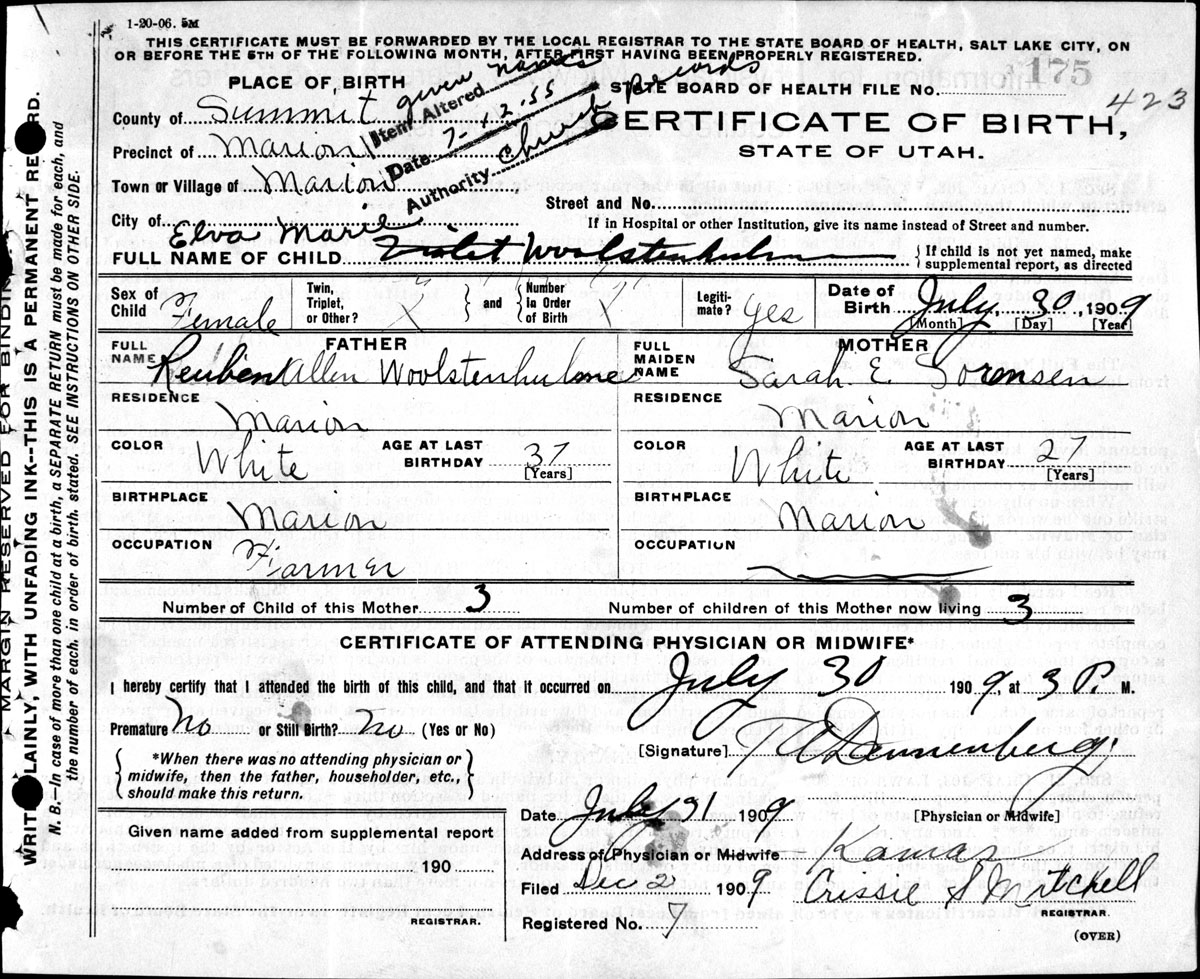 1-20-06. 5M
THIS CERTIFICATE MUST BE FORWARDED BY THE LOCAL REGISTRAR TO THE STATE BOARD OF HEALTH, SALT LAKE CITY, ON
OR BEFORE THE 5TH OF THE FOLLOWING MONTH, AFTER FIRST HAVING BEEN PROPERLY REGISTERED.
175
PLACE OF BIRTH
STATE BOARD OF HEALTH FILE No.
423
County of Summit
Item Altered given names
Date 7-12-55
Authority Church Records
CERTIFICATE OF BIRTH,
Precinct of Marion
STATE OF UTAH.
Town or Village of Marion
Street and No.
City of
If in Hospital or other Institution, give its name instead of Street and number.
Elva Marie
FULL NAME OF CHILD Violet Woolstenhulme
{ If child is not yet named, make supplemental report, as directed
Sex of Child Female
Twin, Triplet, or Other?
} and {
Number in Order of Birth
Legiti-mate? yes
Date of Birth July, 30, 1909
[Month] [Day] [Year]
FATHER
FULL NAME Reuben Allen Woolstenhulme
MOTHER
FULL MAIDEN NAME Sarah E. Sorensen
RESIDENCE Marion
RESIDENCE Marion
COLOR White
AGE AT LAST BIRTHDAY 37 [Years]
COLOR White
AGE AT LAST BIRTHDAY 27 [Years]
BIRTHPLACE Marion
BIRTHPLACE Marion
OCCUPATION Farmer
OCCUPATION
Number of Child of this Mother 3
Number of children of this Mother now living 3
CERTIFICATE OF ATTENDING PHYSICIAN OR MIDWIFE*
I hereby certify that I attended the birth of this child, and that it occurred on July 30 1909, at 3 P. M.
Premature no or Still Birth? no (Yes or No)
[Signature] Dannenberg
{ *When there was no attending physician or midwife, then the father, householder, etc., should make this return. }
Date July 31 1909
[Physician or Midwife]
Given name added from supplemental report
190
Address of Physician or Midwife Kamas
Filed Dec 2 1909
Crissie S Mitchell
REGISTRAR.
REGISTRAR.
Registered No. 7
(OVER)
MARGIN RESERVED FOR BINDING
WRITE PLAINLY, WITH UNFADING INK--THIS IS A PERMANENT RECORD.
N. B.—In case of more than one child at a birth, a SEPARATE RETURN must be made for each, and
the number of each, in order of birth, stated. SEE INSTRUCTIONS ON OTHER SIDE.